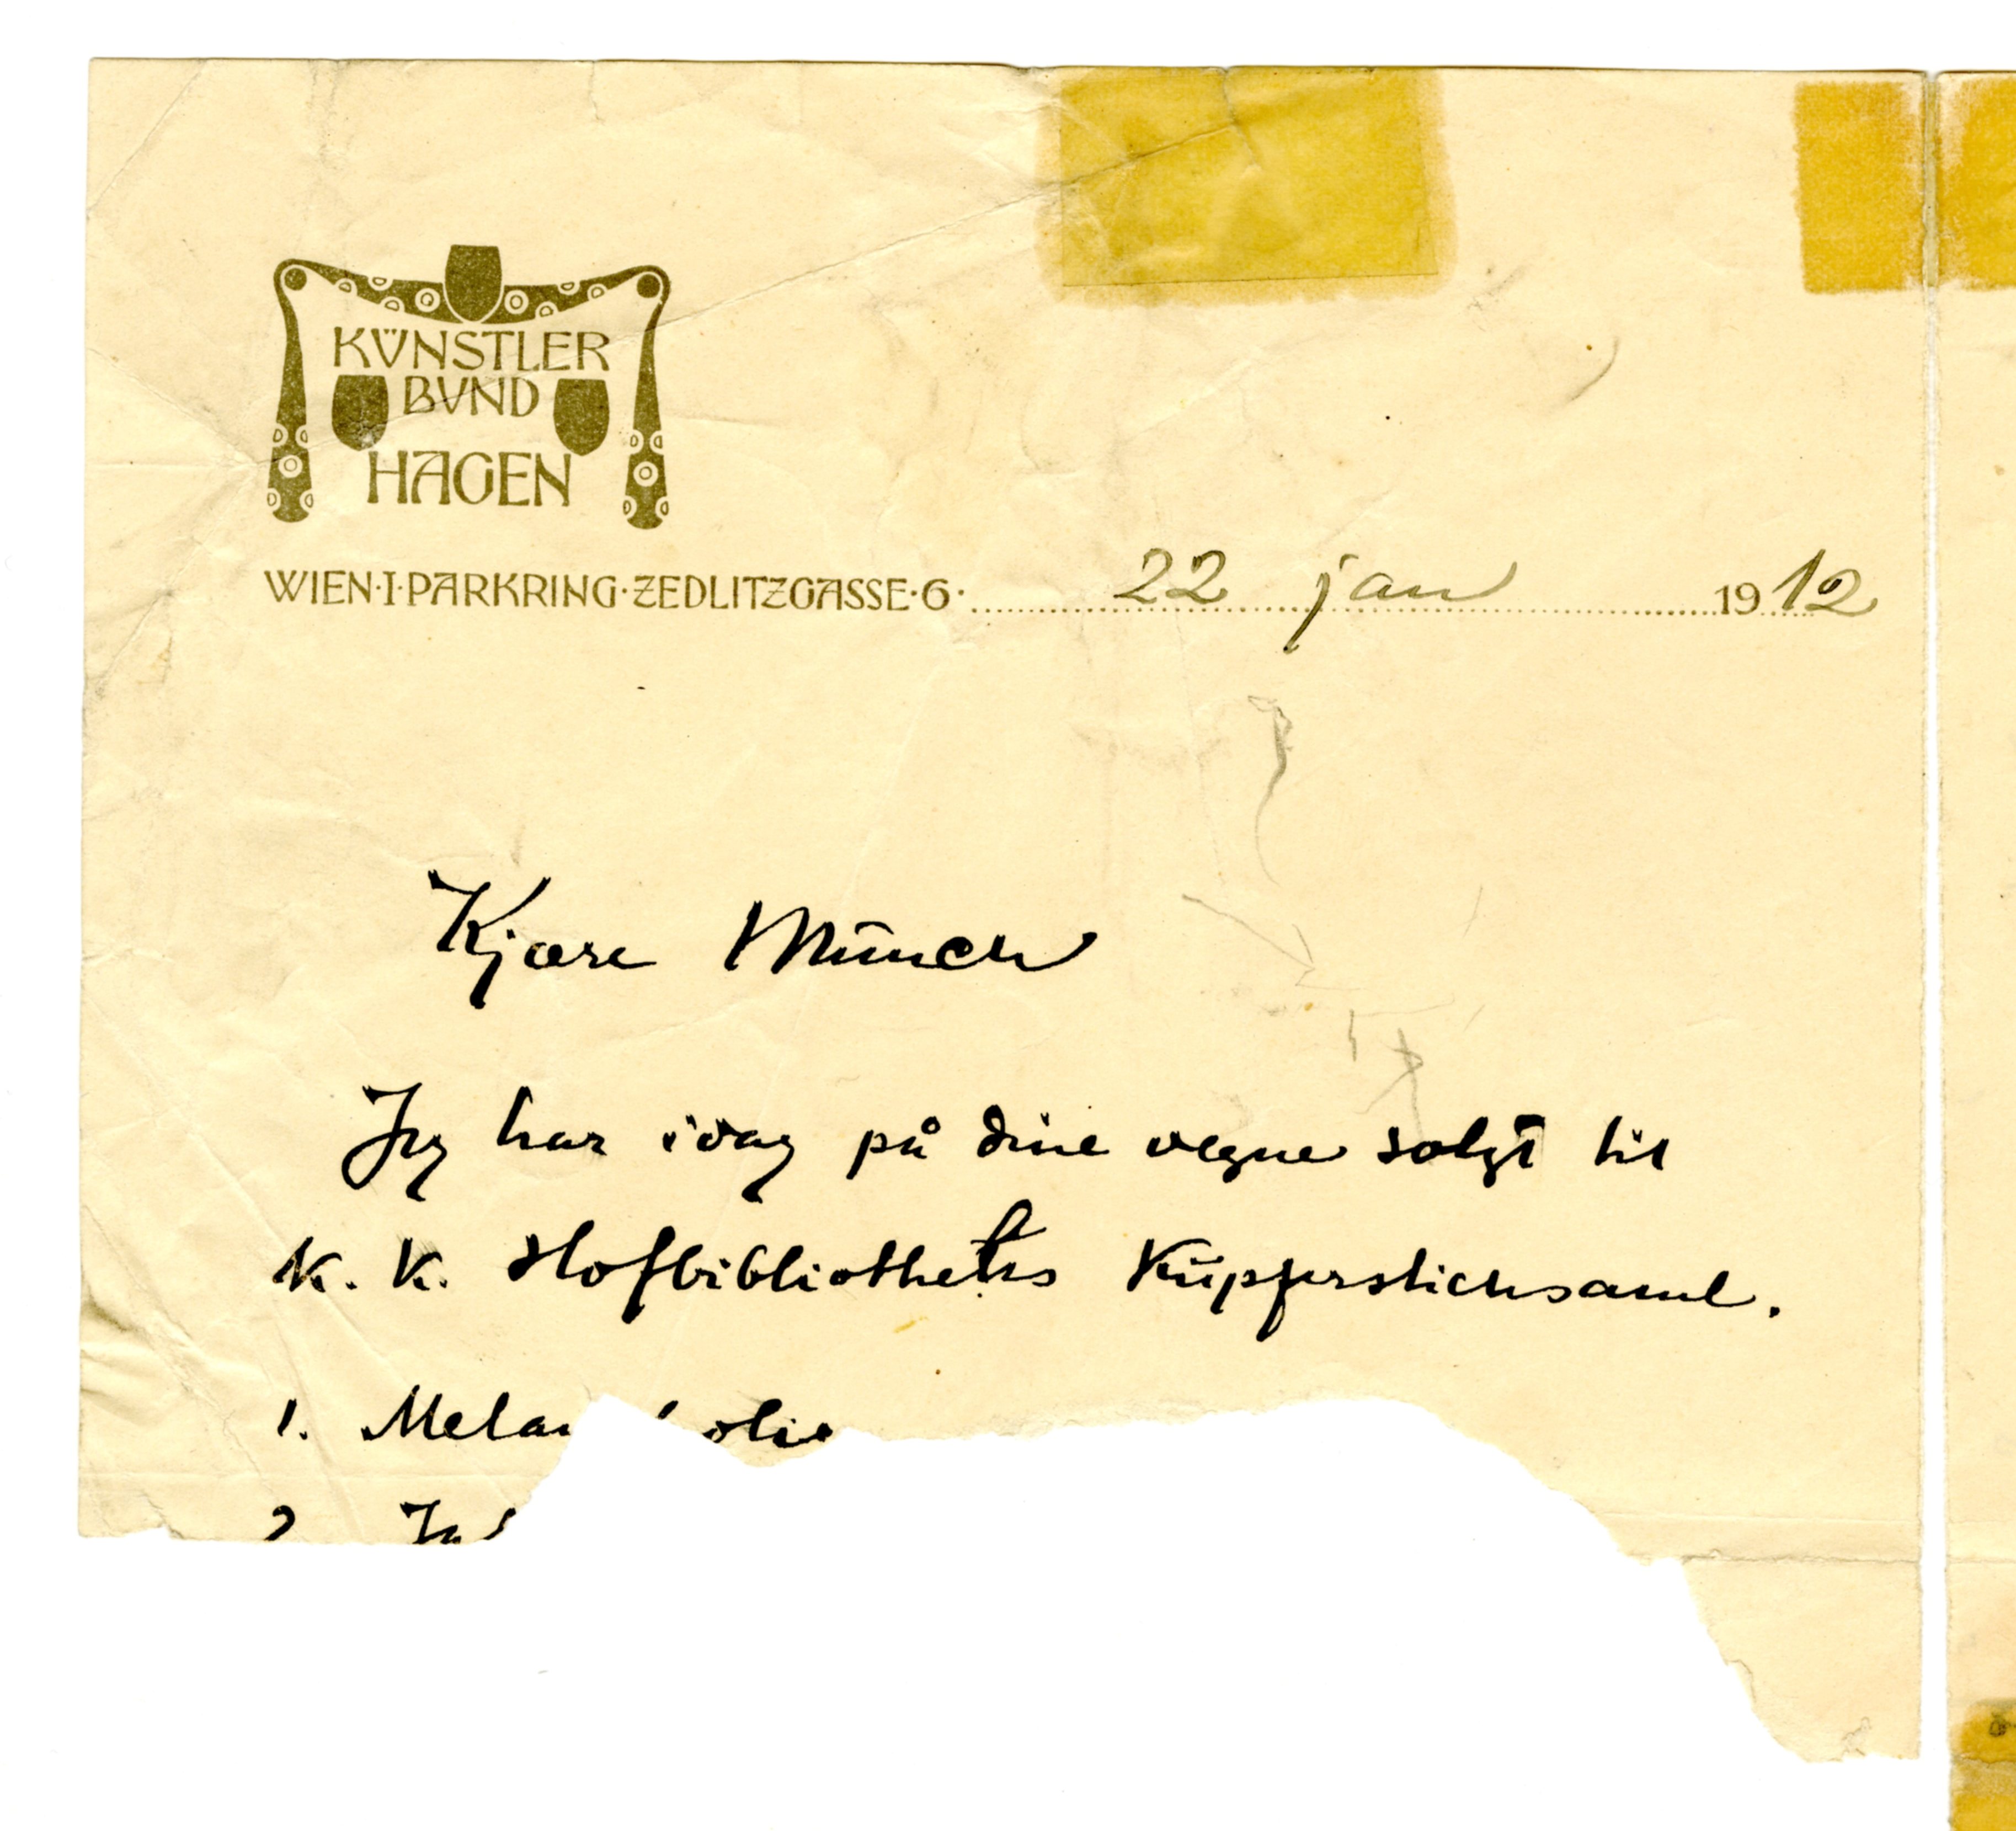 KÜNSTLER
BUND
HAGEN
WIEN·I·PARKRING·ZEDLITZGASSE·6· 22 jan 1912
Kjære Münch
Jeg har idag på dine vegne solgt til
K. K. Hofbibliotheks Kupferstichsaml.
1. Melancholie
2